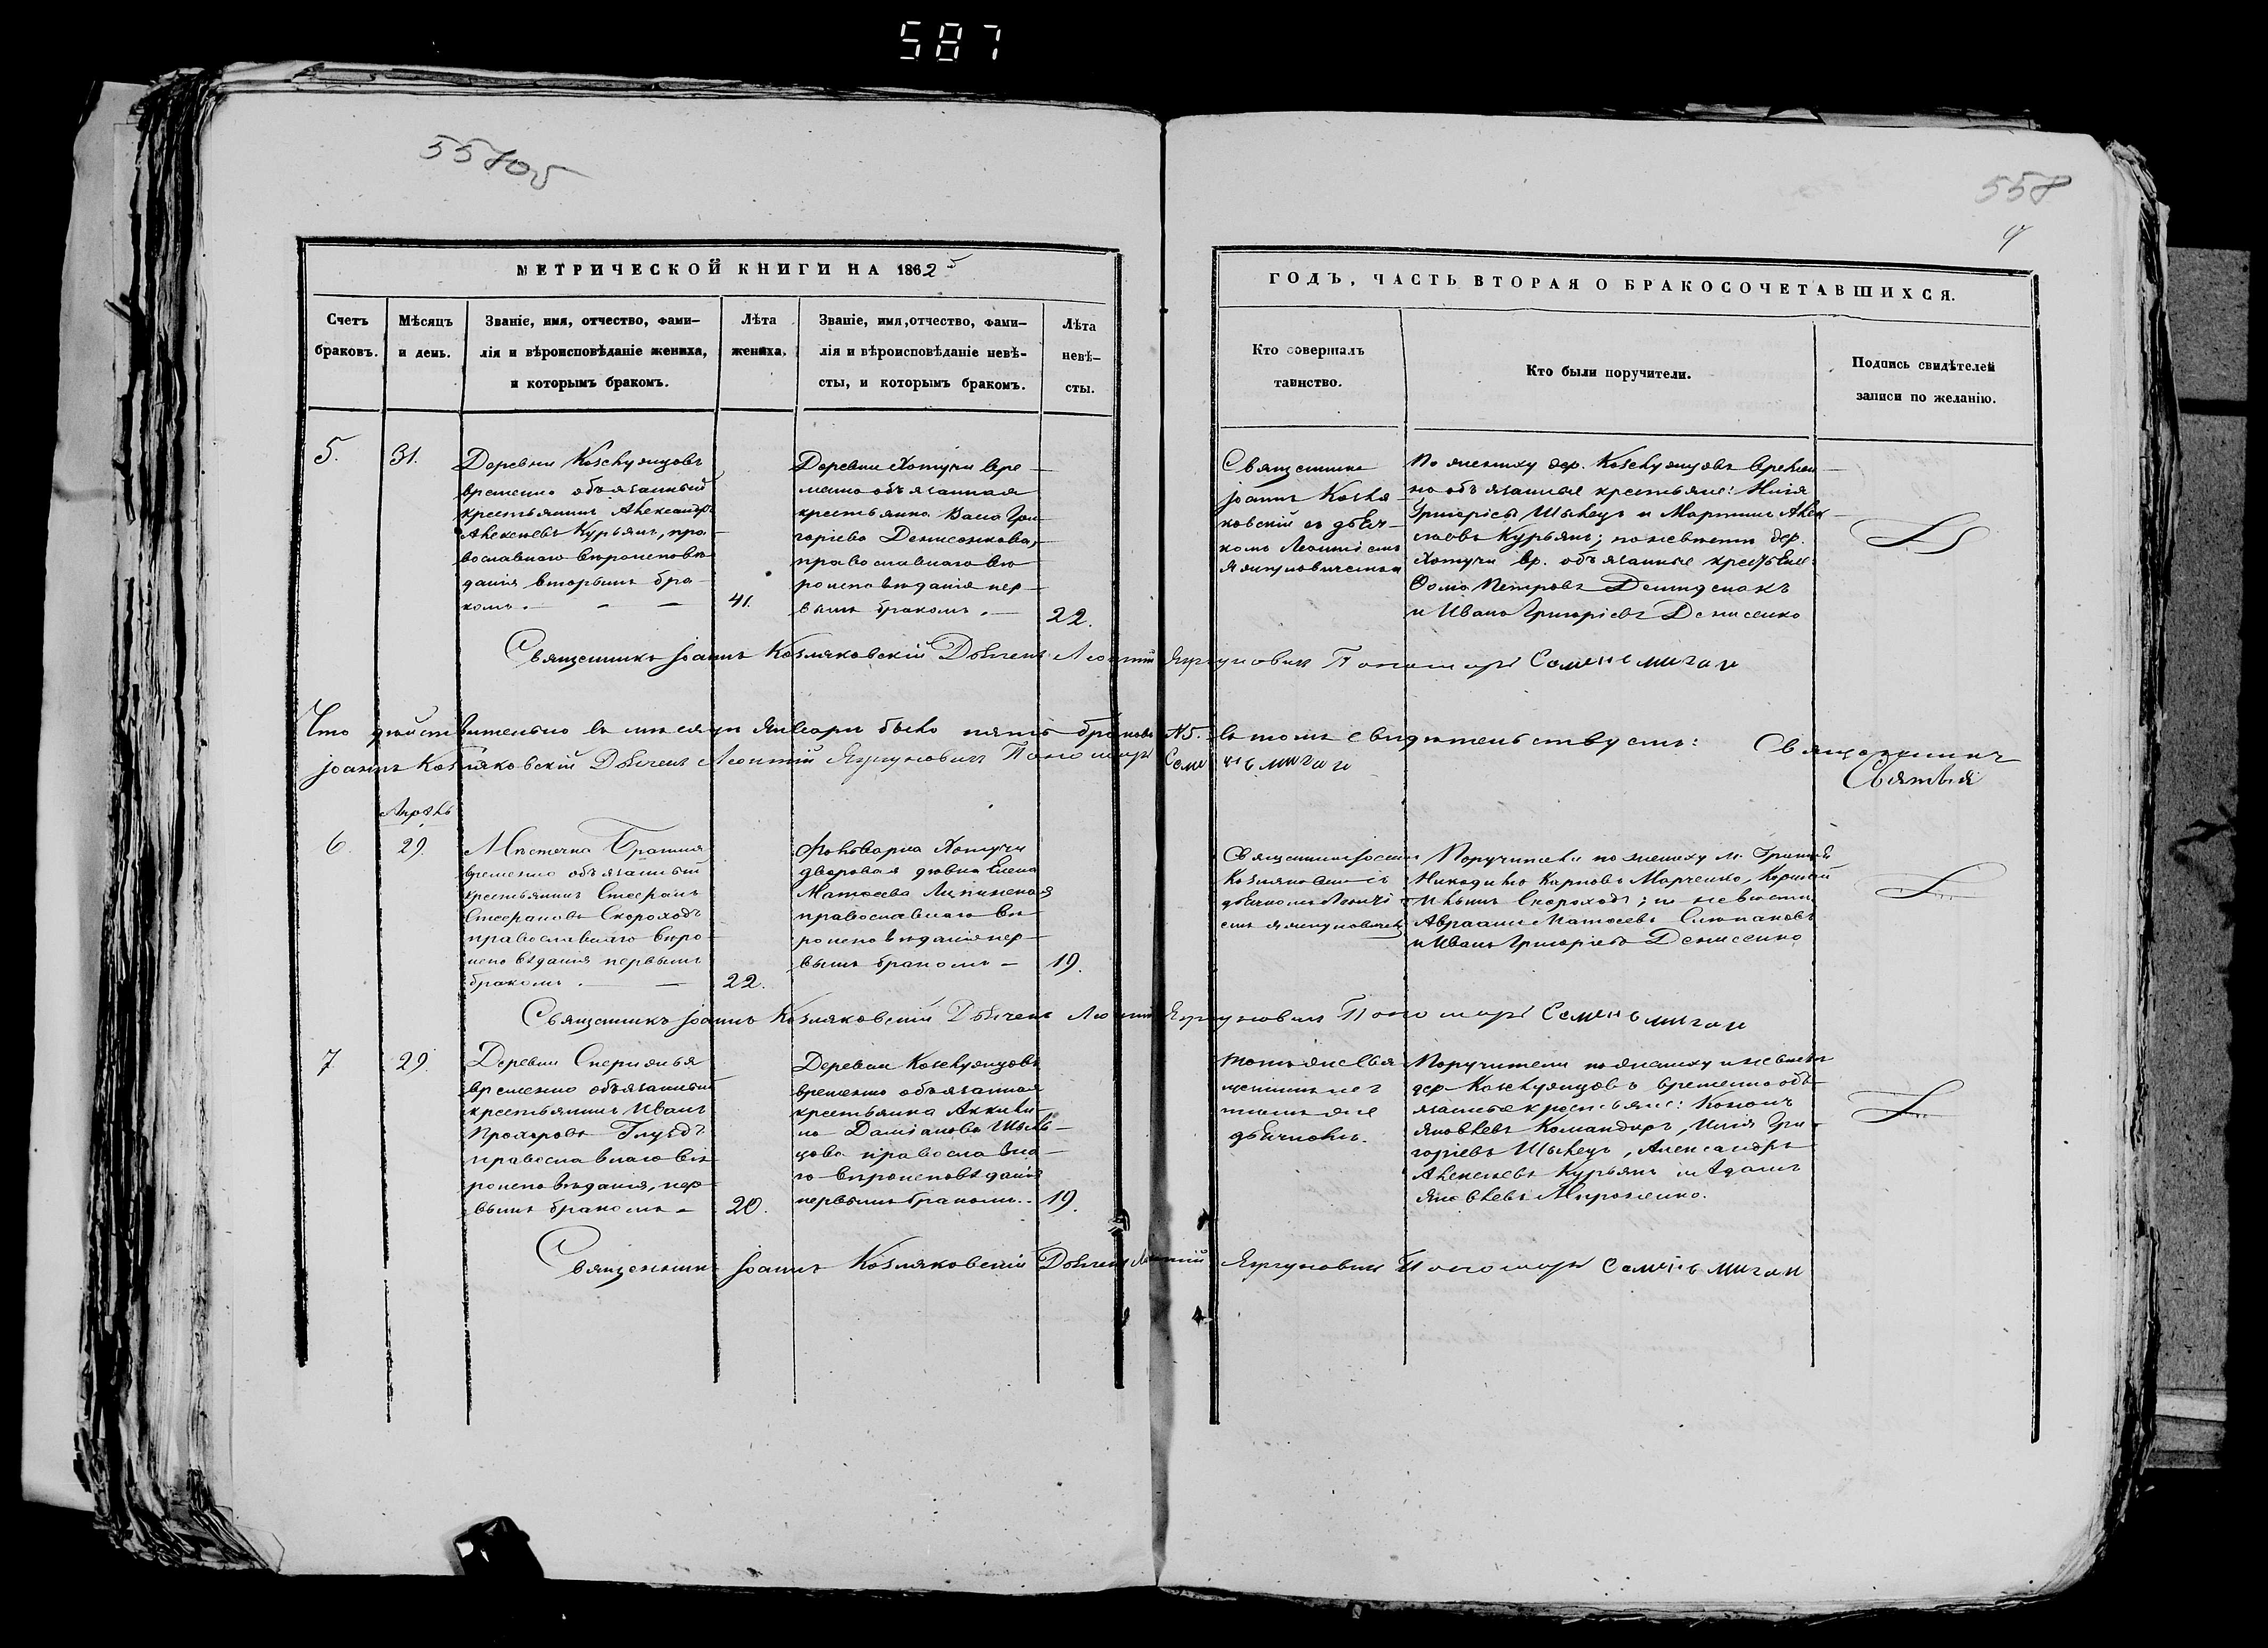 587
557об
558
9
МЕТРИЧЕСКОЙ КНИГИ НА 1862й
Счетъ браковъ.
Мѣсяцъ и день.
Званіе, имя, отчество, фами-
лія и вѣроисповѣданіе жениха,
и которымъ бракомъ.
Лѣта жениха.
Званіе, имя, отчество, фами-
лія и вѣроисповѣданіе невѣ-
сты, и которымъ бракомъ.
Лѣта невѣ-
сты.
ГОДЪ, ЧАСТЬ ВТОРАЯ О БРАКОСОЧЕТАВШИХСЯ.
Кто совершалъ
таинство.
Кто были поручители.
Подпись свидѣтелей
записи по желанію.
5.
31.
Деревни
временно обязанный
крестьянинъ Александръ
Алексѣевъ Курьянъ, пра-
вославнаго вѣроисповѣ-
данія вторымъ бра-
комъ.
41.
Деревни Хотучи вре-
менно обязанная
крестьянка Васса Гри-
горіева Денисенкова,
православнаго вѣ-
роисповѣданія пер-
вымъ бракомъ.
22.
Священникъ
Іоаннъ Козля-
ковскій съ дьяч-
комъ Леонтіемъ
По жениху дер. времен-
но обязанные крестьяне: Илія
Григоріевъ Шылецъ и Мартинъ Алек-
сѣевъ Курьянъ; по невѣсты дер.
Хотучи вр. обязанные крестьяне
Ѳома Петровъ
и Иванъ Григоріевъ Денисенко
Священникъ Іоаннъ Козляковскій Дьячекъ Леонтій Пономарь Семенъ Мигай
Что дѣйствительно въ мѣсяцѣ Январѣ было пять браковъ №5. въ томъ свидѣтельствуемъ: Священникъ
Іоаннъ Козляковскій Дьячекъ Леонтій Пономарь Семенъ Мигай
Апрѣль
6.
29.
Мѣстечка
временно обязанный
крестьянинъ Стефанъ
Стефановъ Скороходъ
православнаго вѣро-
исповѣданія первымъ
бракомъ.
22.
Фольварка Хотучи
дворовая дѣвка Елена
Матѳеева Липинская
православнаго вѣ-
роисповѣданія пер-
вымъ бракомъ
19.
Священникъ Іоаннъ
Козляковскій съ
дьячкомъ Леонті-
емъ
Поручители по жениху м.
Никодимъ Карповъ Марченко,
Скороходъ; по невѣсты
Авраамъ Матѳеевъ
и Иванъ Григоріевъ Денисенко
Священникъ Іоаннъ Козляковскій Дьячекъ Леонтій Пономарь Семенъ Мигай
7
29.
Деревни
временно обязанный
крестьянинъ Иванъ
Прохоровъ
православнаго вѣ-
роисповѣданія, пер-
вымъ бракомъ
20.
Деревни
временно обязанная
крестьянка Акили-
на Даміанова Шыль-
цова православна-
го вѣроисповѣданія
первымъ бракомъ.
19.
Тотъ же Свя-
щенникъ съ
тѣмъ же
дьячкомъ.
Поручители по жениху и невѣстѣ
дер. временно обя-
занные крестьяне: Кононъ
Яковлевъ Командиръ, Илія Гри-
горіевъ Шылецъ, Александръ
Алексѣевъ Курьянъ и Адамъ
Яковлевъ Мироненко.
Священникъ Іоаннъ Козляковскій Дьячекъ Леонтій Пономарь Семенъ Мигай